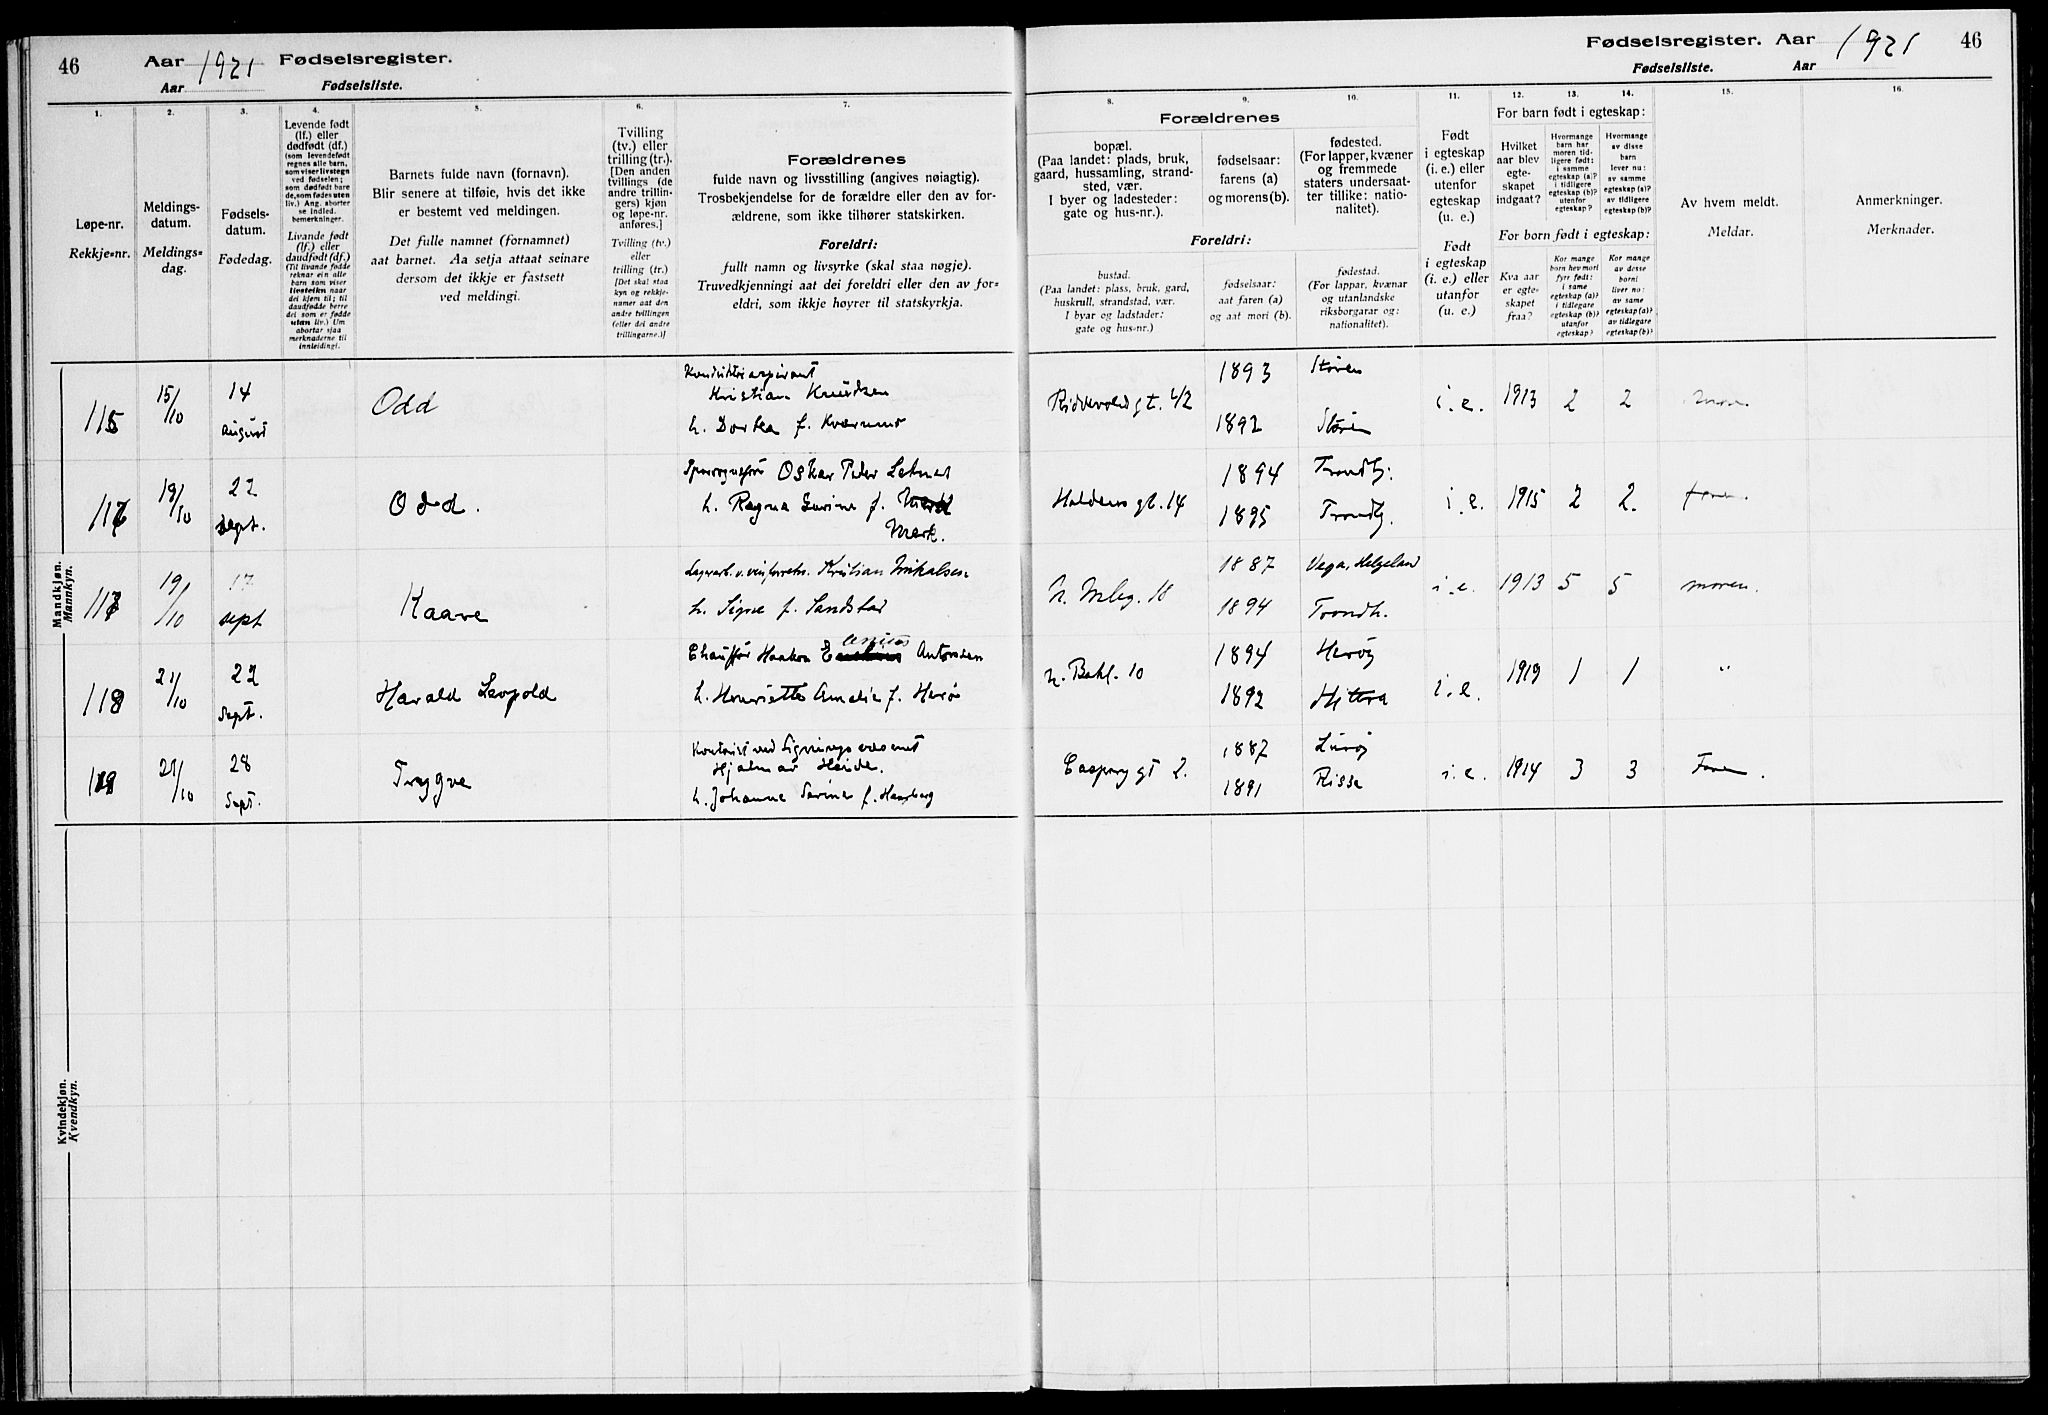 46
Aar 1921 Fødselsregister.
Aar Fødselsliste.
Fødselsregister. Aar 1921 46
Fødselsliste. Aar
1. 2. 3. 4. 5. 6. 7.
Løpe-nr.
Rekkje=nr.
Meldings-
datum.
Meldings=
dag.
Fødsels-
datum.
Fødedag.
Levende født
(lf.) eller
dødfødt (df.)
(som levendefødt
regnes alle barn,
som viser livstegn
ved fødselen;
som dødfødt bare
de, som fødes uten
liv.) Ang. aborter
se indled.
bemerkninger.
Livande født
(lf.) eller
daudfødt (df.)
(Til livande fødde
reknar ein alle
barn som viser
livsteikn naar
dei kjem til; til
daudfødde berre
dei som er fødde
utan liv.) Um
abortar sjaa
merknaderne til
innleidingi.
Barnets fulde navn (fornavn).
Blir senere at tilføie, hvis det ikke
er bestemt ved meldingen.
Det fulle namnet (fornamnet)
aat barnet. Aa setja attaat seinare
dersom det ikkje er fastsett
ved meldingi.
Tvilling
(tv.) eller
trilling (tr.).
[Den anden
tvillings (de
andre trillin-
gers) kjøn
og løpe-nr.
anføres.]
Tvilling (tv.)
eller
trilling (tr.)
[Det skal staa
kyn og rekkje-
namer aat den
andre tvillingen
(eller dei andre
trillingarne.)]
Forældrenes
fulde navn og livsstilling (angives nøiagtig).
Trosbekjendelse for de forældre eller den av for-
ældrene, som ikke tilhører statskirken.
Foreldri:
fullt namn og livsyrke (skal staa nøgje).
Truvedkjenningi aat dei foreldri eller den av for=
eldri, som ikkje høyrer til statskyrkja.
8. 9. 10. 11. 12. 13. 14. 15. 16.
Forældrenes
bopæl.
(Paa landet: plads, bruk,
gaard, hussamling, strand-
sted, vær.
I byer og ladesteder:
gate og hus-nr.).
fødselsaar:
farens (a)
og morens(b).
fødested.
(For lapper, kvæner
og fremmede
staters undersaat-
ter tillike: natio-
nalitet).
Foreldri:
bustad.
(Paa landet: plass, bruk, gard,
huskrull, strandstad, vær.
I byar og ladstader:
gate og hus-nr.)
fødselsaar:
aat faren (a)
og aat mori (b).
fødestad.
(For lappar, kvænar
og utanlandske
riksborgarar og:
nationalitet).
Født
i egteskap
(i. e.) eller
utenfor
egteskap
(u. e.)
Født
i egteskap
(i. e.) eller
utanfor
(u. e.)
For barn født i egteskap:
Hvilket
aar blev
egte-
skapet
indgaat?
Hvormange
barn har
moren tid-
ligere født:
i samme
egteskap (a)?
i tidligere
egteskap (b)?
utenfor
egteskap?
Hvormange
av disse
barn
lever nu:
av samme
egteskap (a)?
av tidligere
egteskap (b)?
For born født i egteskap:
Kva aar
er egte-
skapet
fraa?
Kor mange
born hev mori
fyrr født:
i same
egteskap (a)?
i tidlegare
egteskap (b)?
utanfor
egteskap?
Kor mange
av desse
borni
liver no:
av same
egteskap (a)?
av tidlegare
egteskap (b)?
Av hvem meldt.
Meldar.
Anmerkninger.
Merknader.
Mandkjøn.
Mannkyn.
115 15/10 14 august Odd
Konduktøraspirant
Kristian Knudsen
h. Dortea f. Kværnmo
1893 Støren
Riddervoldsgt. 42 i.e. 1913 2 2 moren
1892 Støren
116 19/10 22 sept. Odd.
Oskar Peder
h. Ragna f.
Merk.
1894 Trondhj.
Haldens gt. 14 i.e. 1915 2 2. faren.
1895 Trondhj.
117 19/10 17 sept Kaare
Kristian Mikalsen
h. Signe f. Sandstad
1887 Vega, Helgeland
18 i.e. 1913 5 5 moren.
1894 Trondh.
118 21/10 22 sept. Harald Leopold
Chauffør Haakon Antonsen
h. Henriette Amalie f. Herø
1894 Herøy
n. Bakl. 10 i.e. 1919 1 1 "
1892 Hittra
119 21/10 28 sept. Trygve
Kontorist ved Ligningsvæsenet
Hjalmar Heide.
h. Johanne f. Haarberg
1887 Lurøy
Casparygt 2. i.e. 1914 3 3 Faren.
1891 Rissa
Kvindekjøn.
Kvendkyn.